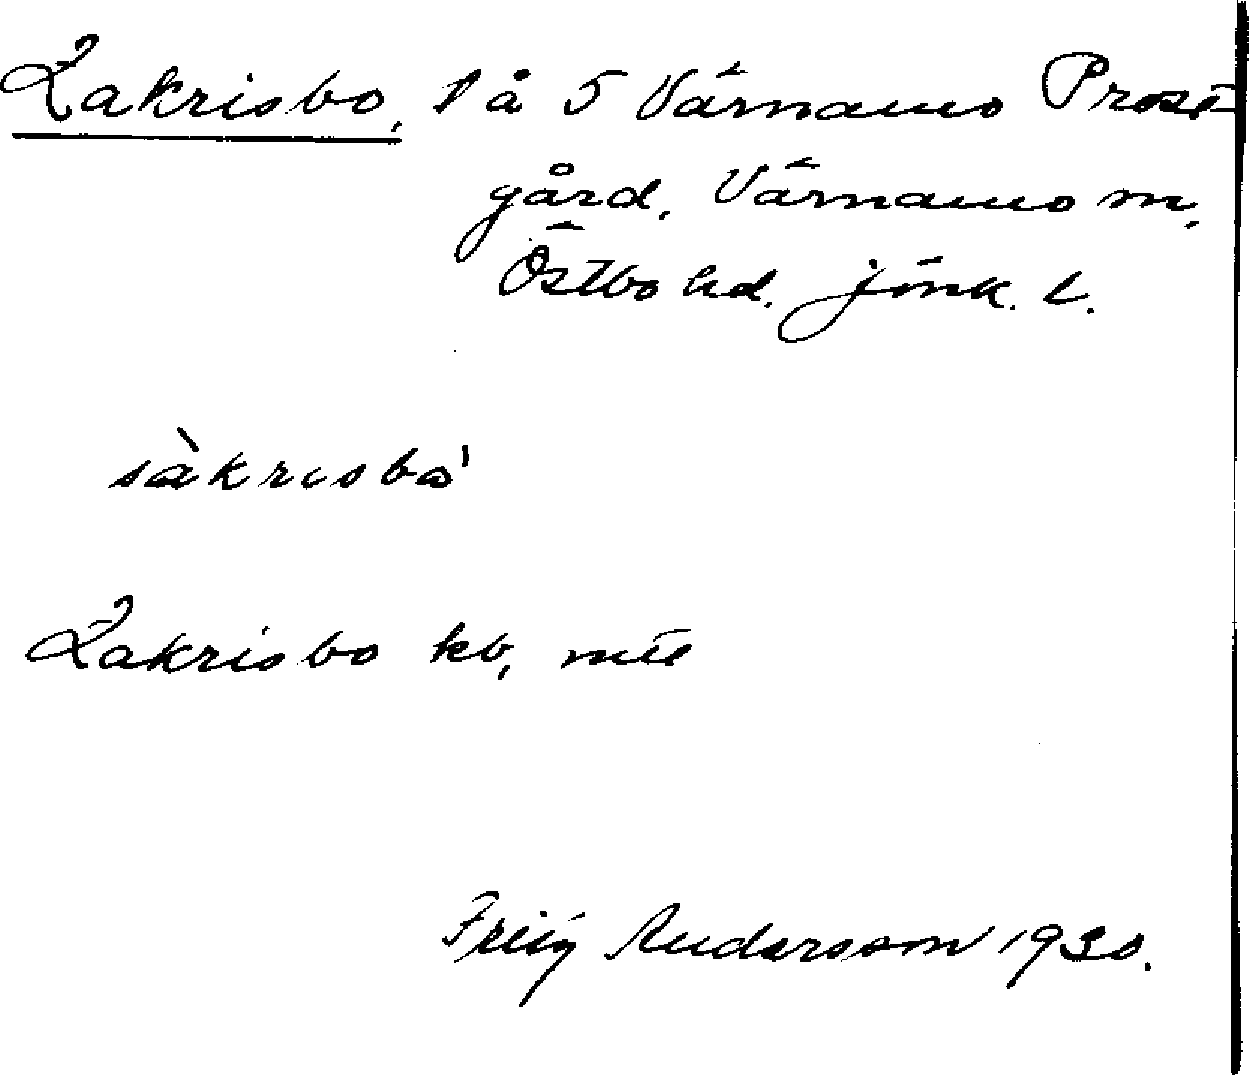 Zakrisbo, 1 å 5 Värnamo Prost-
gård, Värnamo sn,
Östbo hd. Jönk. l.
sàkrisbo'
Zakrisbo kb,
Andersson 1930.